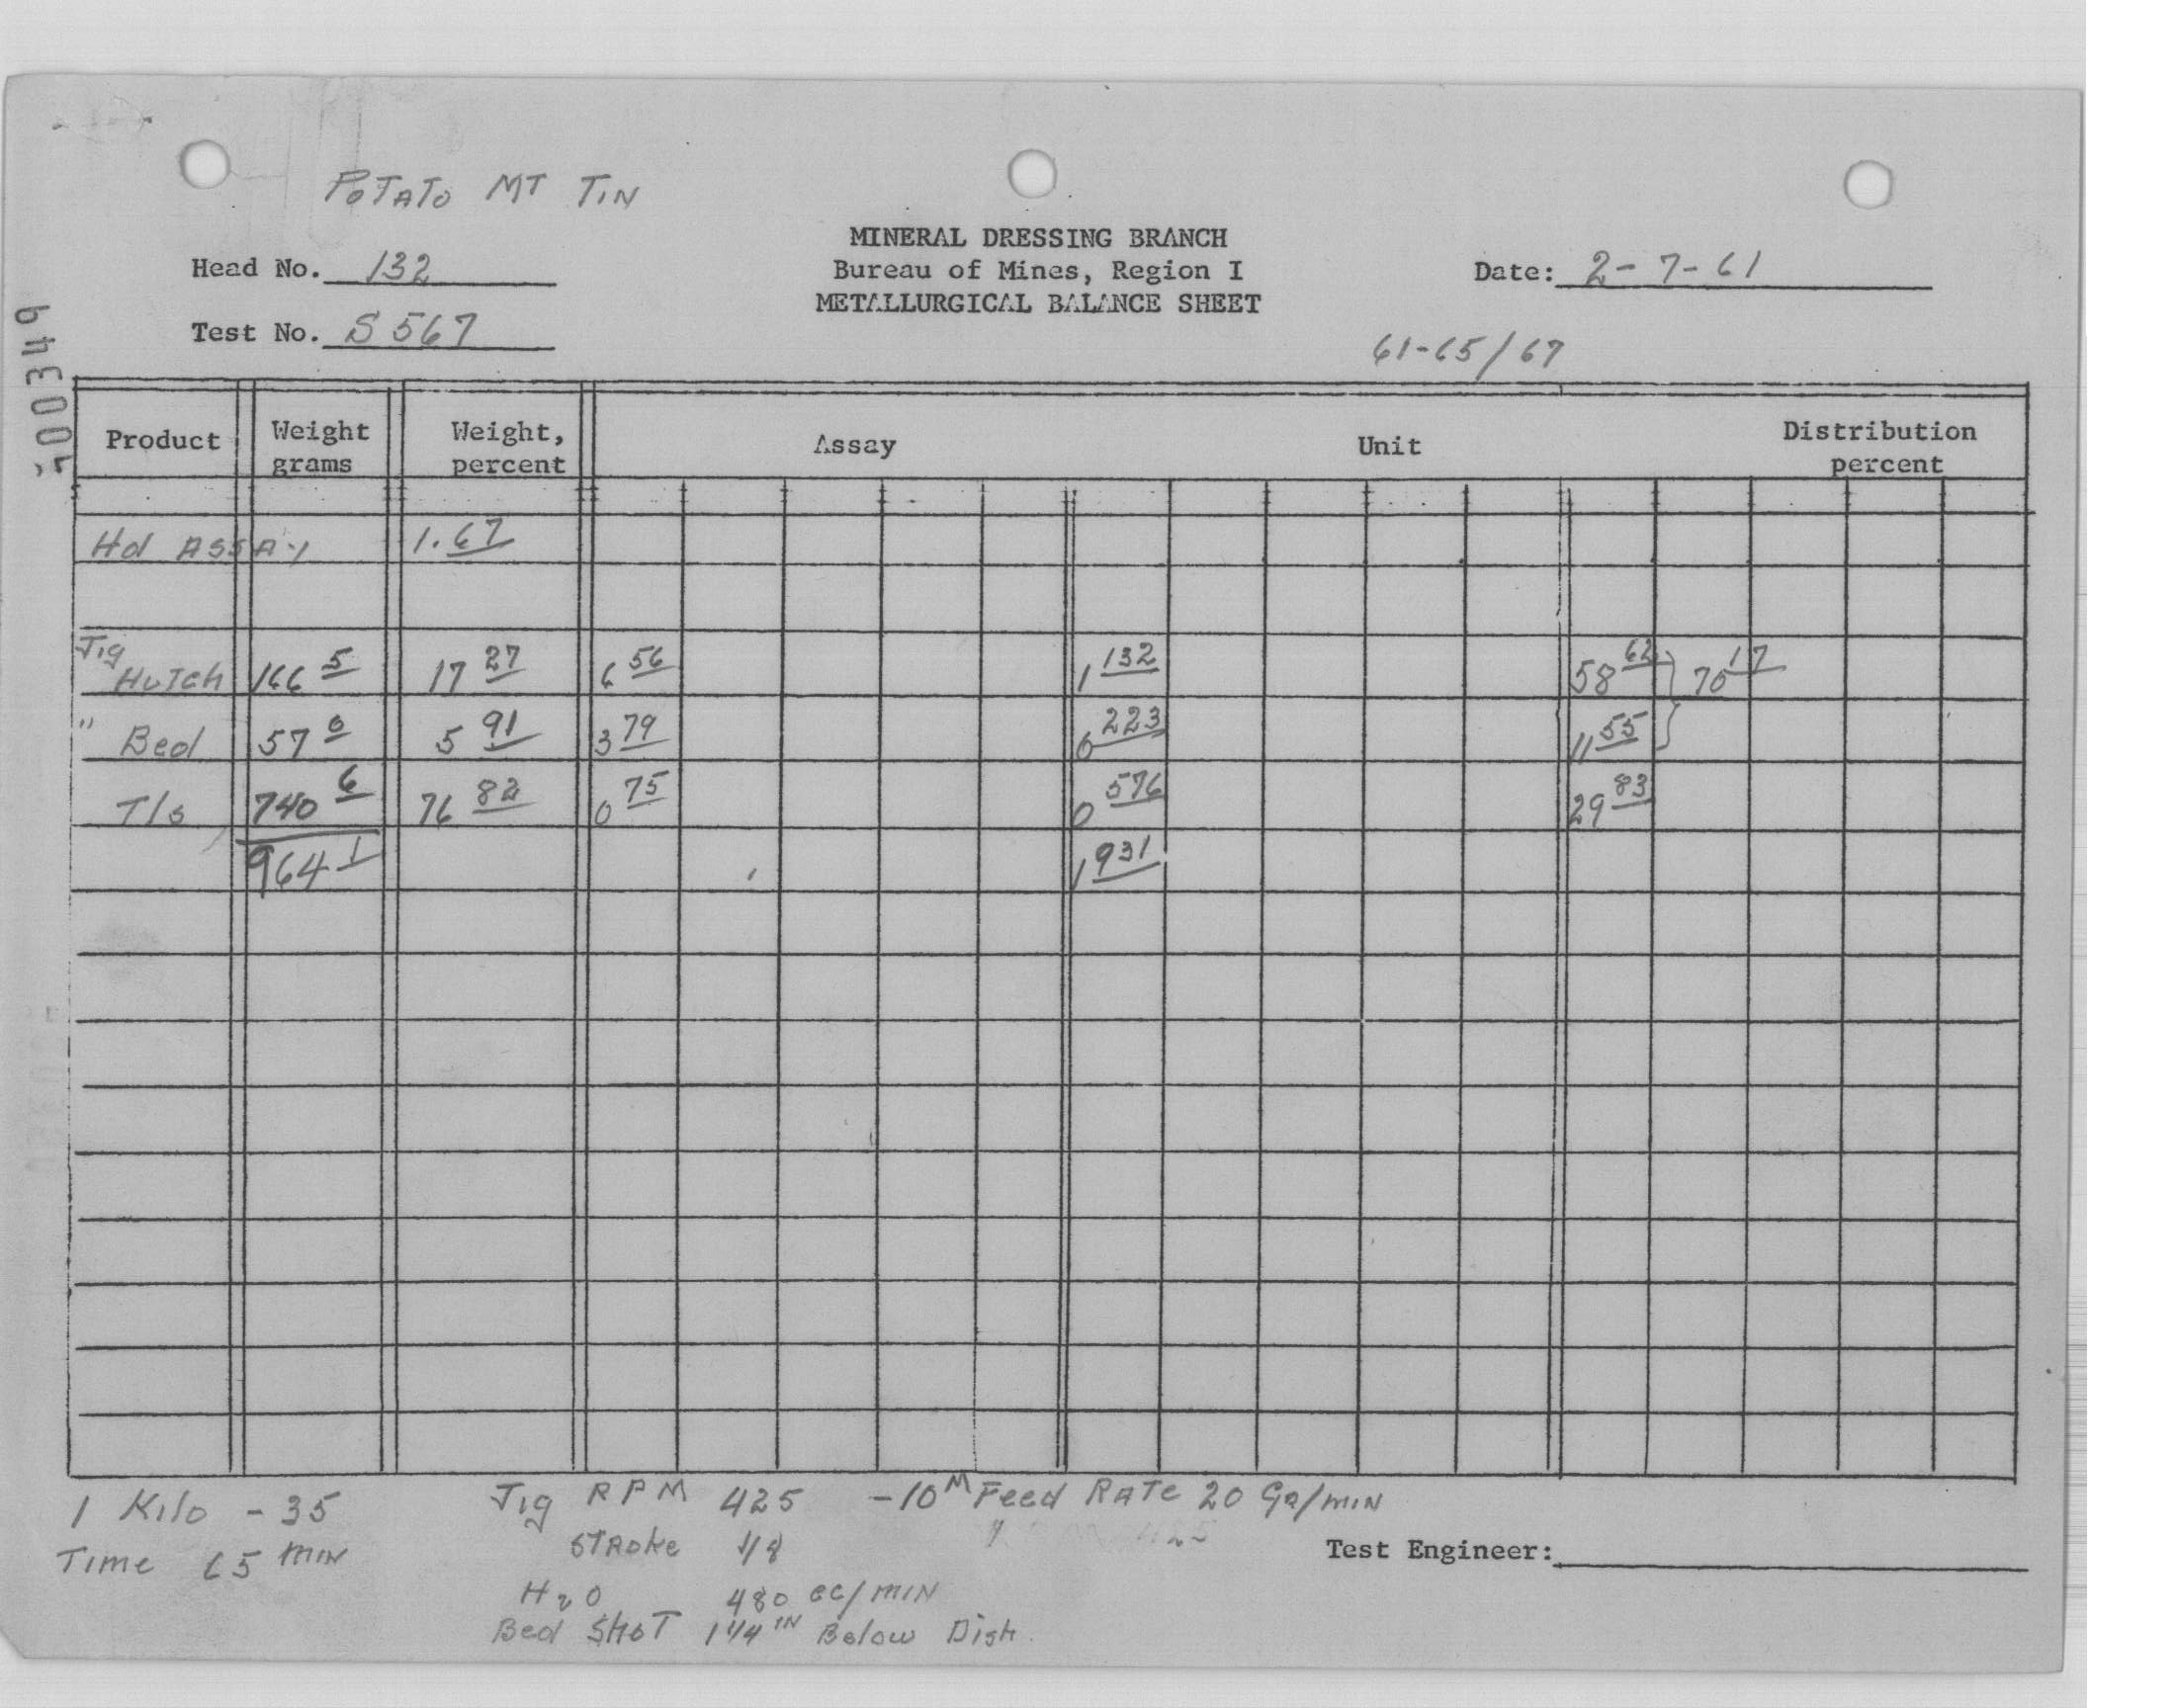 POTATO MT TIN
MINERAL DRESSING BRANCH
Head No. 132
Bureau of Mines, Region I
Date: 2-7-61
METALLURGICAL BALANCE SHEET
Test No. S 567
61-65/67
Product Weight grams Weight, percent Assay Unit Distribution percent
Hd ASSAY 1.67
Jig Hutch 166 5 17 27 6 56 1 132 58 62 } 70 17
" Bed 57 0 5 91 3 79 0 223 11 55
T/s 740 6 76 82 0 75 0 576 29 83
964 1 1 931
1 Kilo - 35
Time 65 MIN
Jig RPM 425 -10M Feed RATE 20 GR/MIN
STROKE 1/8
Test Engineer:
H2O 480 CC/MIN
Bed SHOT 1 1/4 IN Below Dish.